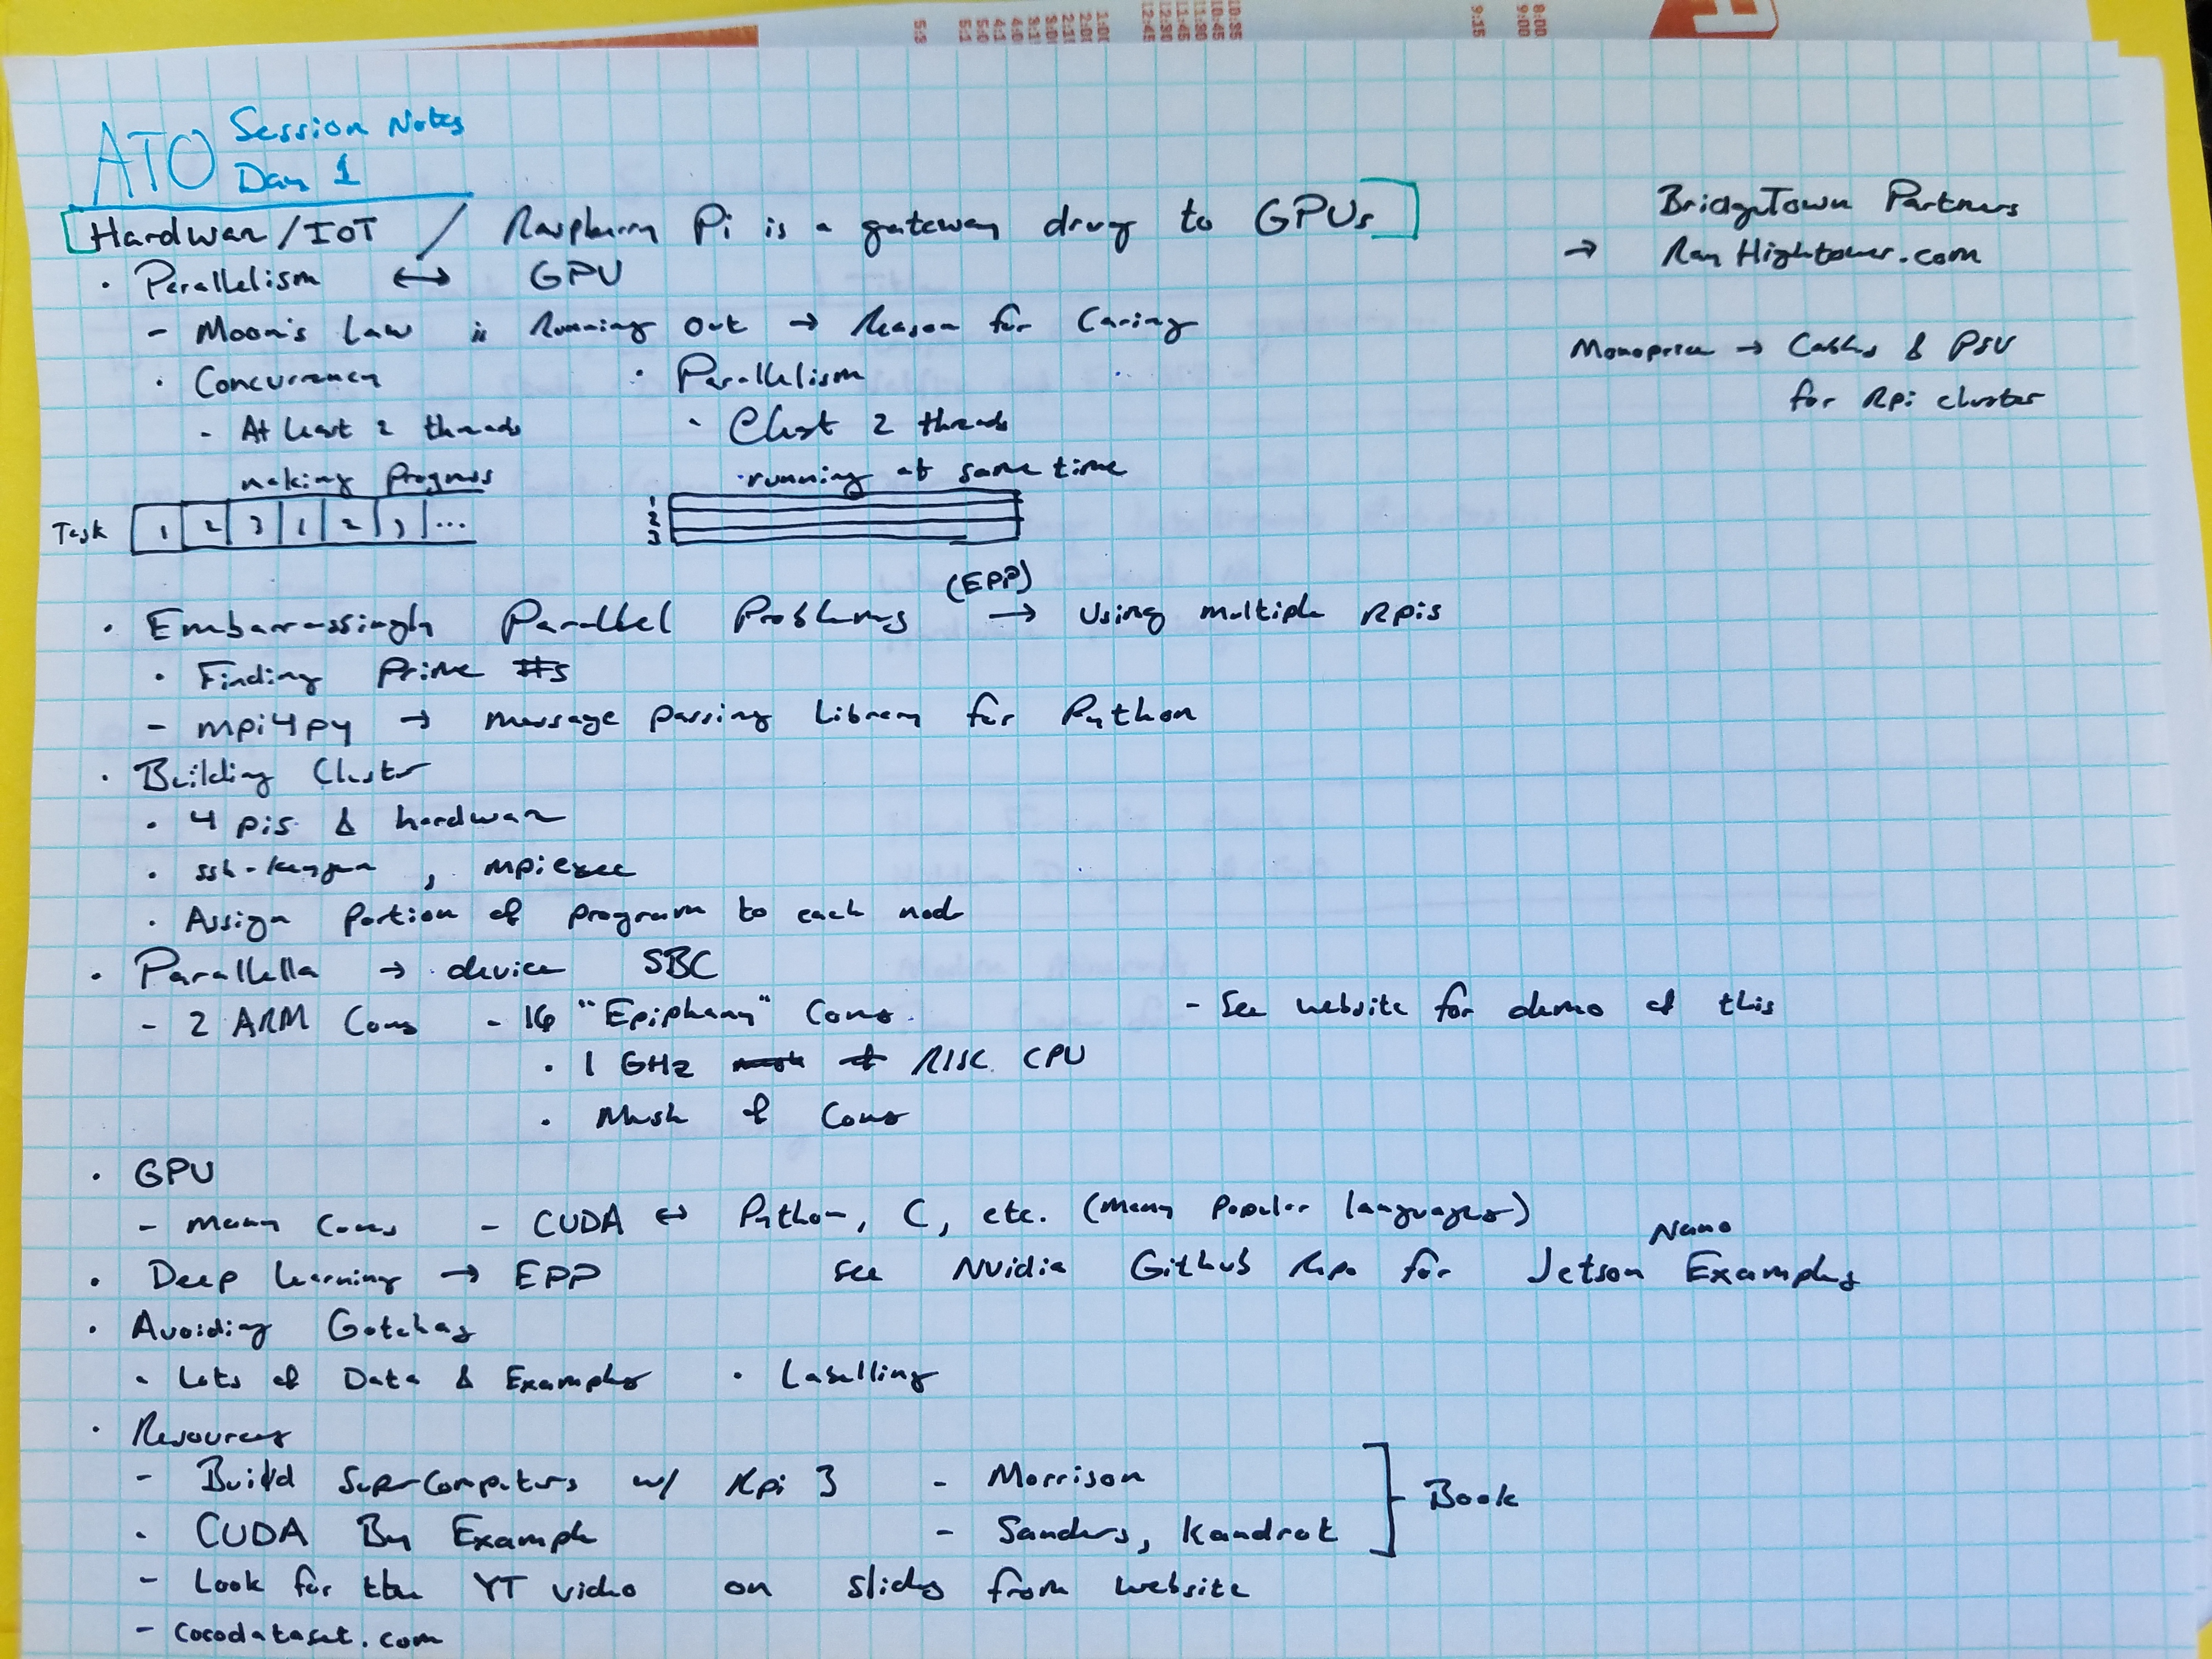 ATO Session Notes
Day 1
Hardware/IoT / Raspberry Pi is a gateway drug to GPUs
BridgeTown Partners
→ RayHightower.com
• Parallelism ↔ GPU
- Moore's Law is Running out → Reason for Caring
Monoprice → Cables & PSU
for RPi cluster
• Concurrency • Parallelism
- At least 2 threads • At least 2 threads
making Progress • running at same time
Task 1 2 3 1 2 3 ...
1
2
3
• Embarassingly Parallel Problems (EPP) → using multiple RPis
• Finding Prime #s
- mpi4py → message passing library for Python
• Building Cluster
• 4 pis & hardware
• ssh-keygen, mpiexec
• Assign Portion of program to each nod
• Parallella → device SBC
- 2 ARM Cores - 16 "Epiphany" Cores. - See website for demo of this
• 1 GHz RISC CPU
• Mesh of Cores
• GPU
- Many Cores - CUDA ↔ Python, C, etc. (Many popular languages)
• Deep Learning → EPP See Nvidia GitHub Repo for Jetson Nano Examples
• Avoiding Gotchas
• Lots of Data & Examples • Labelling
• Resources
- Build SuperComputers w/ Rpi 3 - Morrison
• CUDA By Example - Sanders, Kandrot
] Book
- Look for the YT video on slides from website
- cocodataset.com